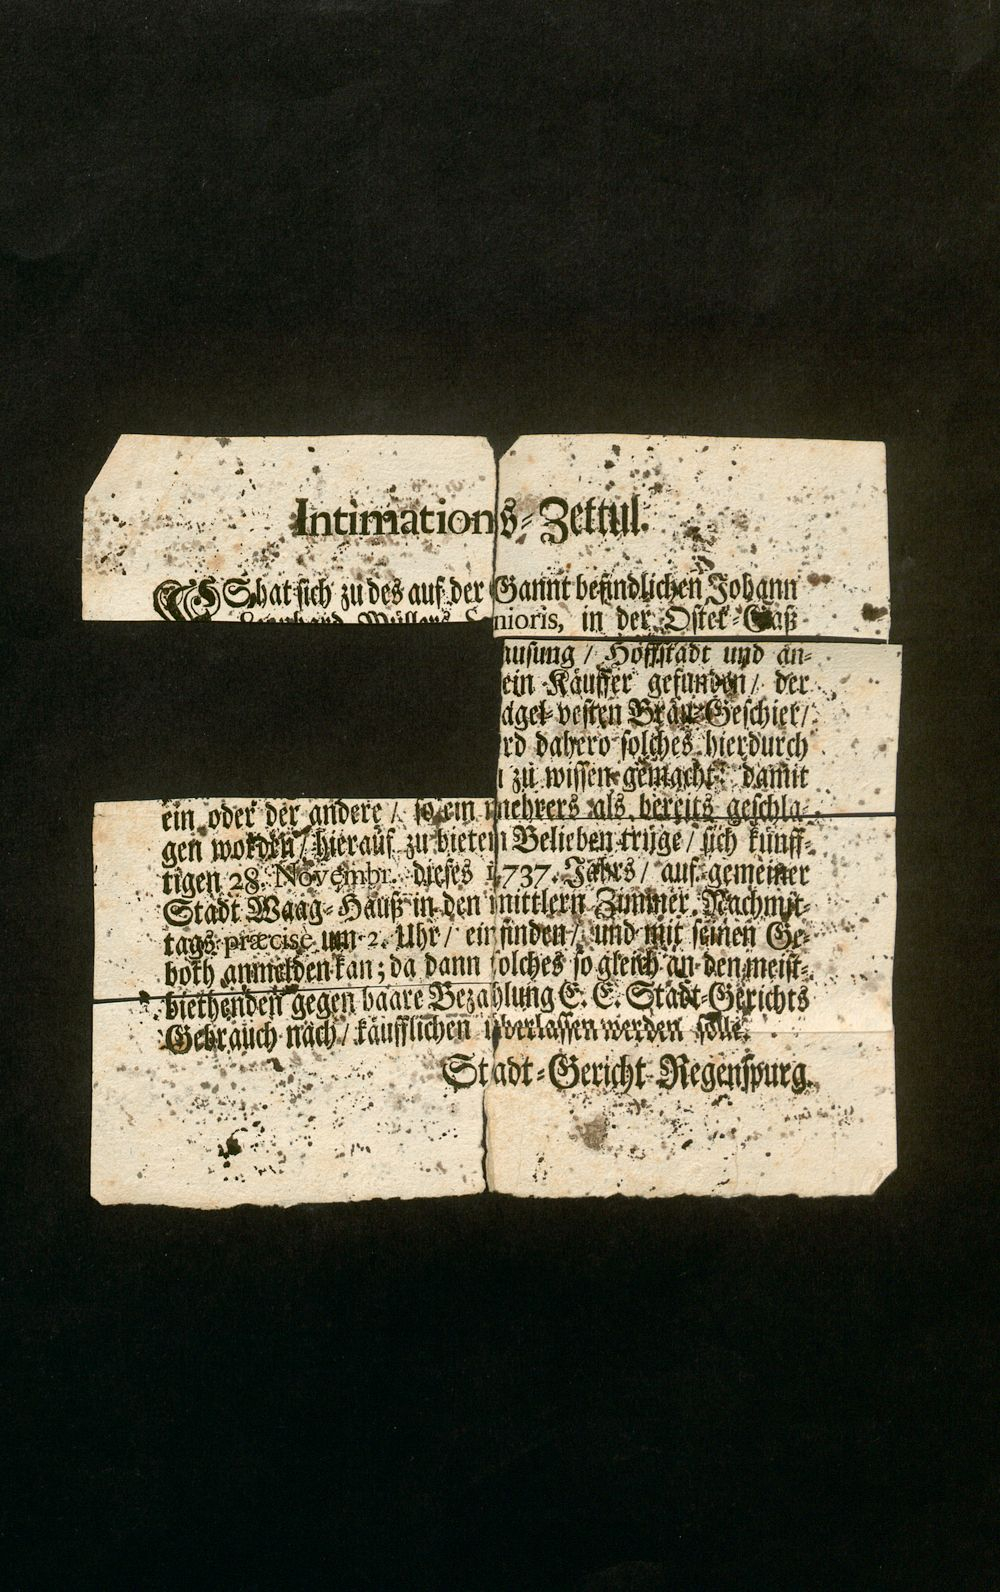 Intimations-Zettul.
ES hat sich zu des auf der Gannt befindlichen Johann
Müllers Senioris, in der Oster-Gaß
ausung / Hoffstadt und an-
ein Käuffer gefunden / der
agel-vesten Bräu-Geschier /
rd dahero solches hierdurch
zu wissen gemacht damit
ein oder der andere / so ein mehrers als bereits geschla-
gen worden / hierauf zu bieten Belieben trüge / sich künff-
tigen 28. Novembr. dieses 1737. Jahrs / auf gemeiner
Stadt Waag-Hauß in den mittlern Zimmer Nachmit-
tags præcise um 2. Uhr / einfinden / und mit seinen Ge-
both anmelden kan; da dann solches so gleich an den meist-
biethenden gegen baare Bezahlung E. E. Stadt-Gerichts
Gebrauch nach / käufflichen überlassen werden solle.
Stadt-Gericht Regenspurg.